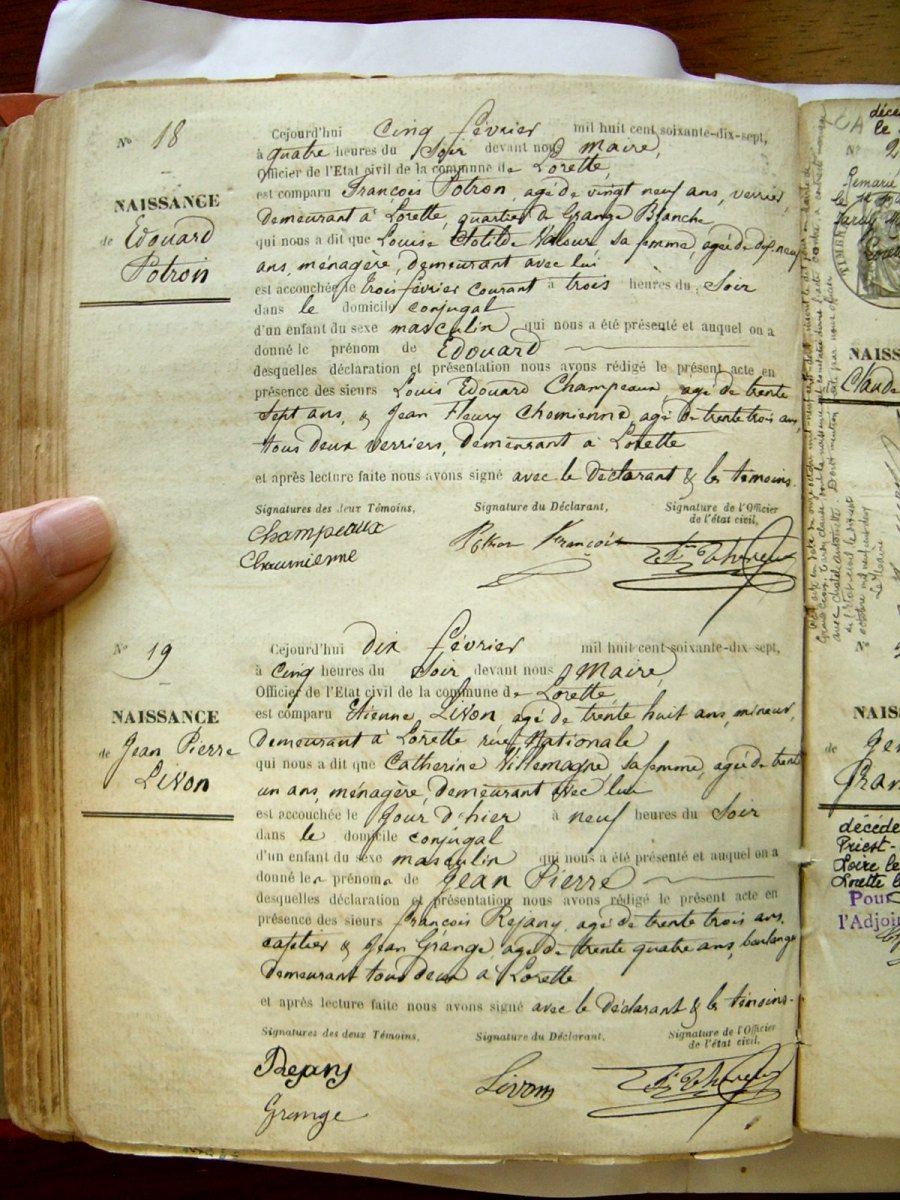 No 18
NAISSANCE
de Edouard
Potron
Cejourd'hui cinq février mil huit cent soixante-dix-sept,
à quatre heures du Soir devant nous Maire,
Officier de l'Etat civil de la commune de Lorette,
est comparu François Potron, agé de vingt neuf ans, verrier,
demeurant à Lorette, quartier de Grange Blanche
qui nous a dit que Louise Clotilde sa femme, agée de dix neuf
ans, ménagère, demeurant avec lui
est accouchée le trois février courant à trois heures du Soir
dans le domicile conjugal
d'un enfant du sexe masculin qui nous a été présenté et auquel on a
donné le prénom de Edouard
desquelles déclaration et présentation nous avons rédigé le présent acte en
présence des sieurs Louis Edouard Champeaux, agé de trente
sept ans, & Jean Fleury Chomienne, agé de trente trois ans,
tous deux verriers, demeurant à Lorette
et après lecture faite nous avons signé avec le déclarant & les témoins.
Signatures des deux Témoins,
Signature du Déclarant,
Signature de l'Officier
de l'état civil,
Champeaux
Chaumienne
Potron François
No 19
NAISSANCE
de Jean Pierre
Livon
Cejourd'hui dix février mil huit cent soixante-dix sept,
à cinq heures du Soir devant nous Maire,
Officier de l'Etat civil de la commune de Lorette
est comparu Etienne Livon, agé de trente huit ans, mineur,
demeurant à Lorette rue Nationale
qui nous a dit que Catherine Villemagne, sa femme, agée de trente
un ans, ménagère, demeurant avec lui
est accouchée le jour d'hier à neuf heures du Soir
dans le domicile conjugal
d'un enfant du sexe masculin qui nous a été présenté et auquel on a
donné les prénoms de Jean Pierre
desquelles déclaration et présentation nous avons rédigé le présent acte en
présence des sieurs François Rejany, agé de trente trois ans,
cafetier & Jean Grange, agé de trente quatre ans, boulanger
demeurant tous deux à Lorette
et après lecture faite nous avons signé avec le déclarant & les témoins.
Signatures des deux Témoins,
Signature du Déclarant,
Signature de l'Officier
de l'état civil,
Rejany
Grange
Livon
décé
le
No 2
Remarié
NAISS
Claude
No
NAIS
de
décédé
Priest-
Loire le
Lorette l
Pour
l'Adjoi